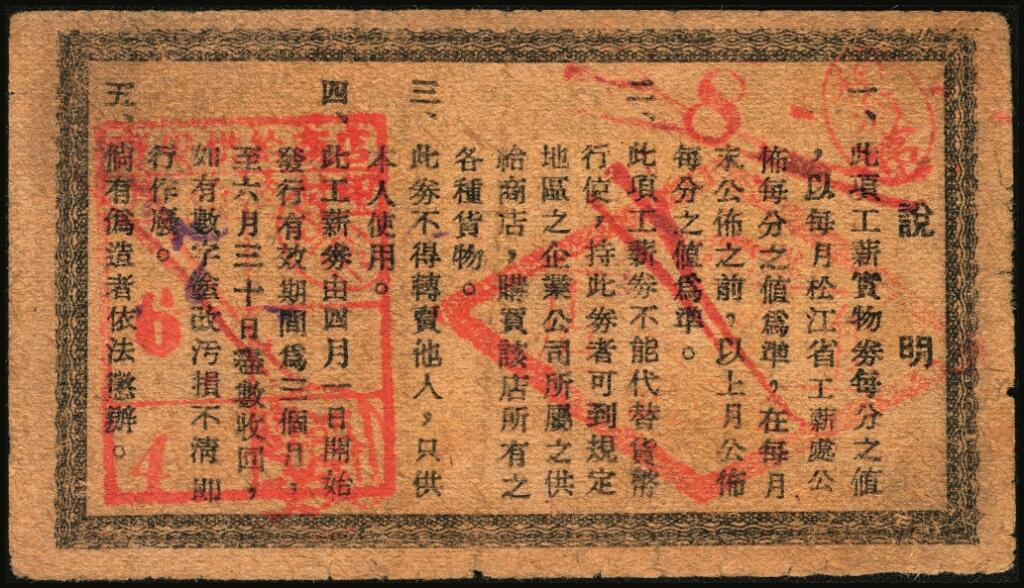 說明
一、此項工薪實物券每分之值
，以每月松江省工薪處公
佈每分之值爲準，在每月
末公佈之前，以上月公佈
每分之值爲準。
二、此項工薪券不能代替貨幣
行使，持此券者可到規定
地區之企業公司所屬之供
給商店，購買該店所有之
各種貨物。
三、此券不得轉賣他人，只供
本人使用。
四、此工薪券由四月一日開始
發行有效期間爲三個月，
至六月三十日盡數收回，
如有數字塗改污損不清即
行作廢。
五、倘有僞造者依法懲辦。
8
6
4